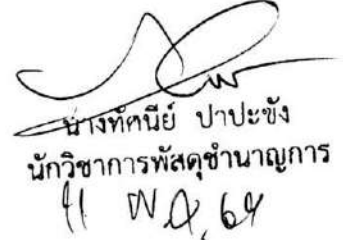 นางทัศนีย์ ปาปะขัง
นักวิชาการพัสดุชำนาญการ
11 พ.ค. 64